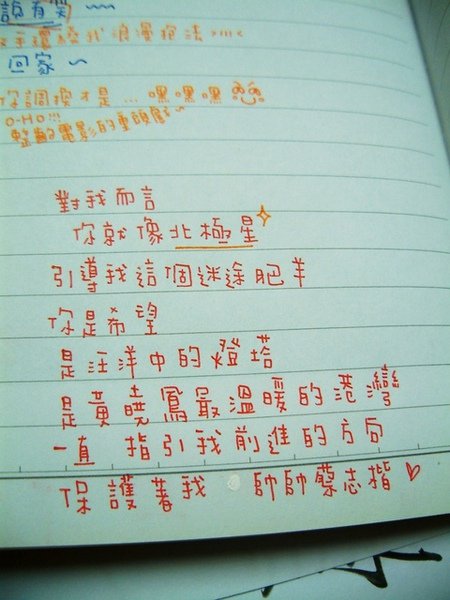 說有笑 ~~~
手還給我浪漫抱法 >///<
回家 ~
你調換才是...嘿嘿嘿
O-HO!!!
整齣電影的重頭戲~
對我而言
你就像北極星
引導我這個迷途肥羊
你是希望
是汪洋中的燈塔
是黃曉鳳最溫暖的港灣
一直 指引我前進的方向
保護著我 帥帥蔡志楷♡